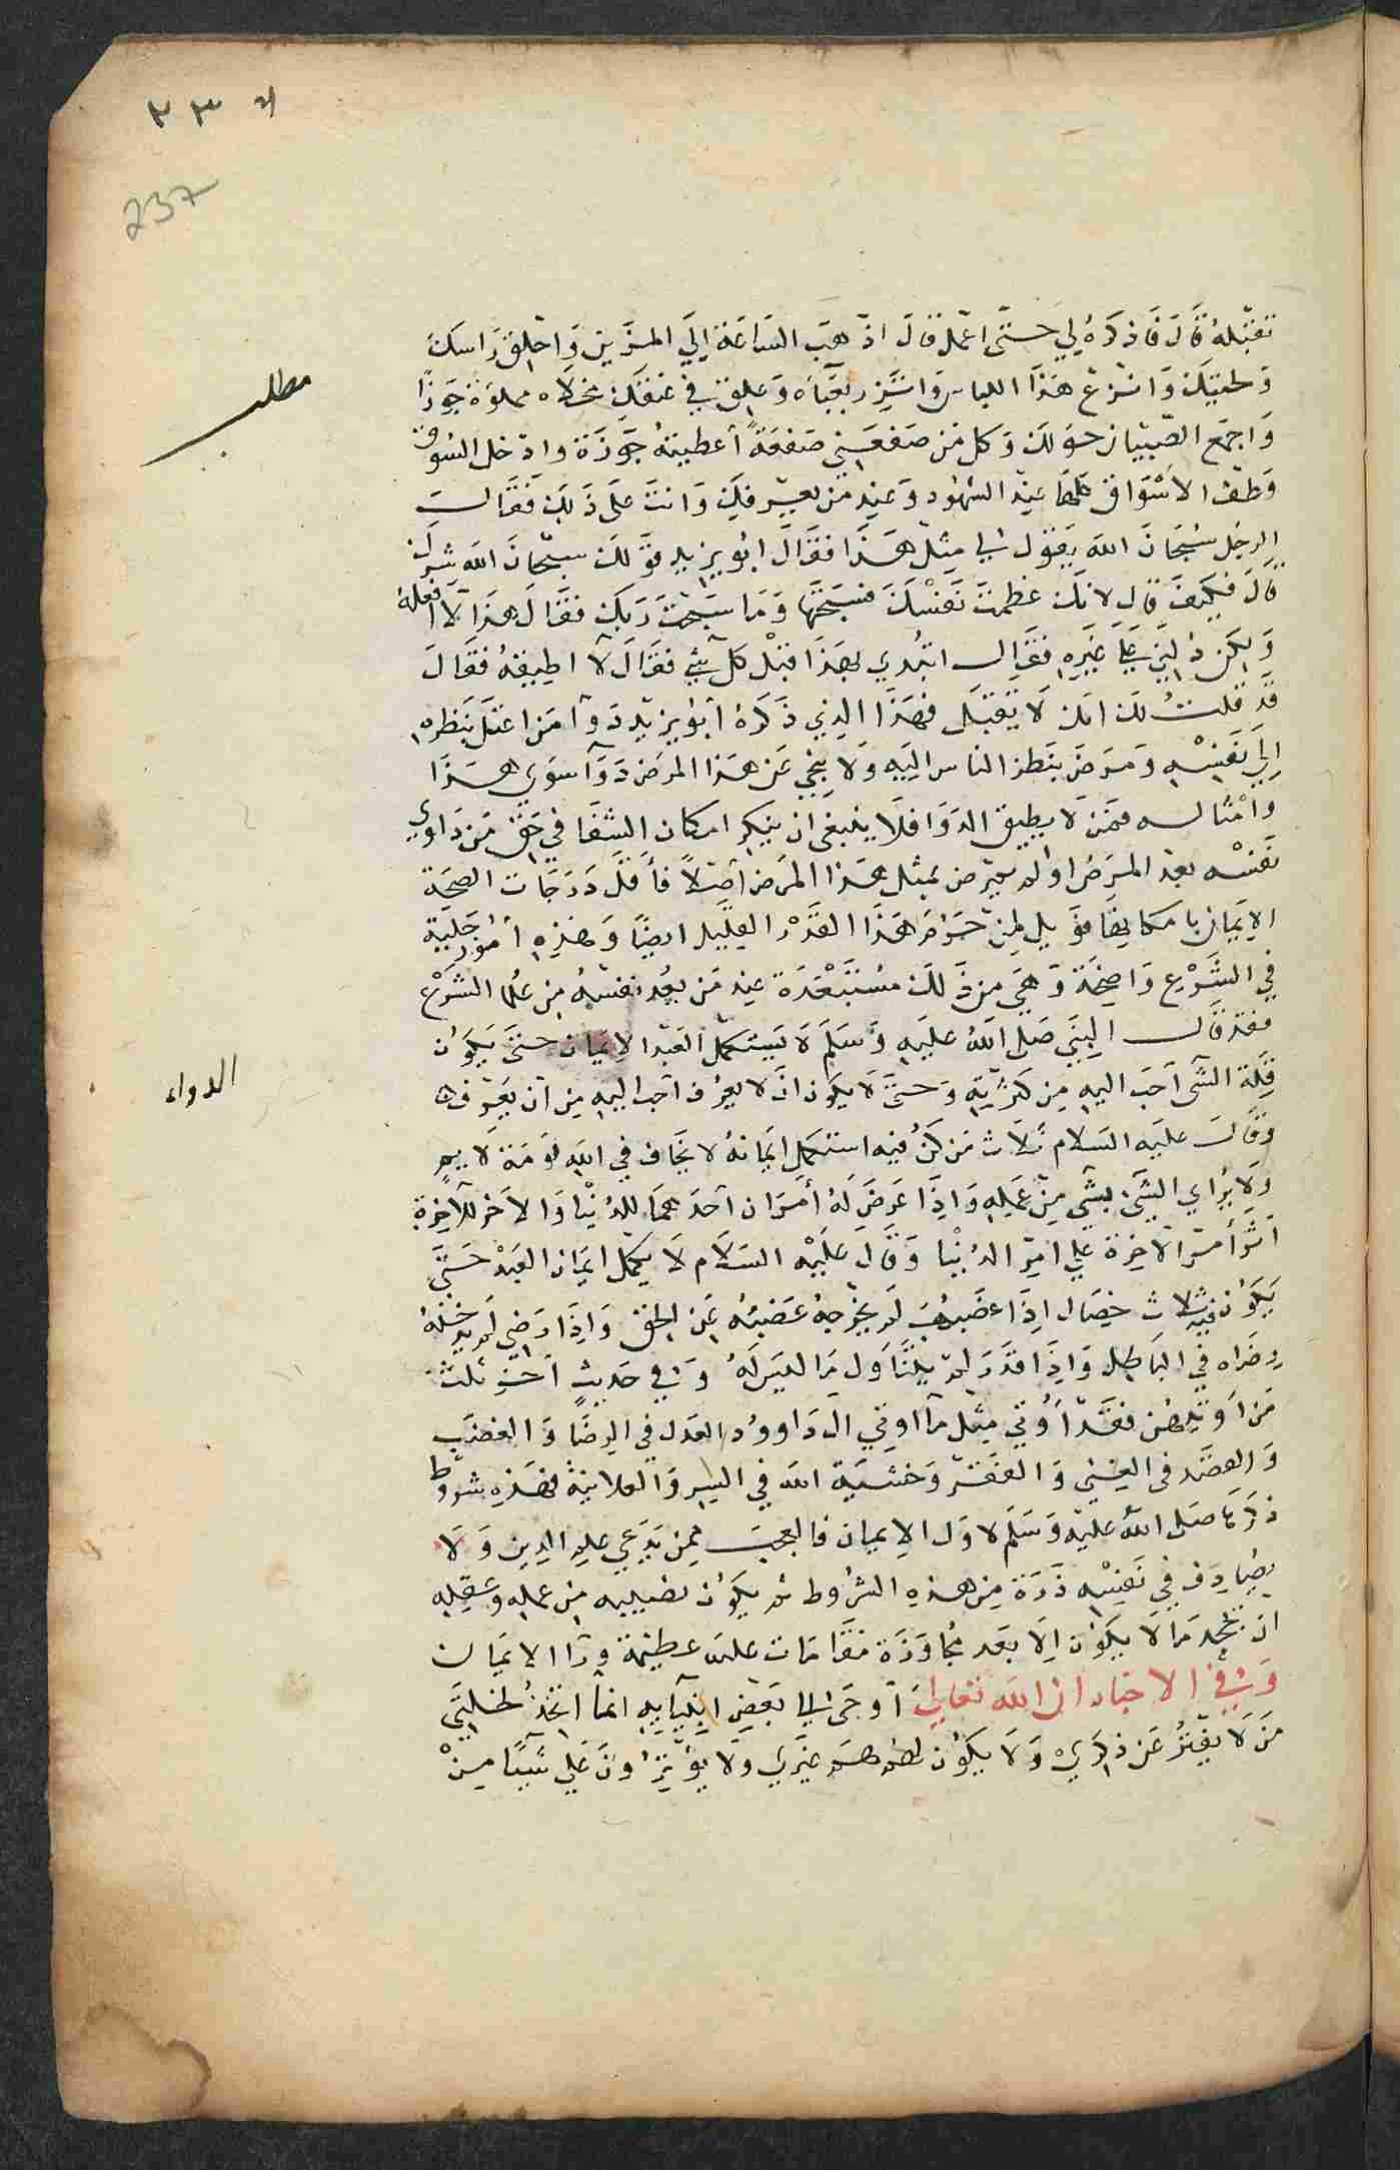 237
تقبله قال فاذكره لي حتى اعمل قال اذهب الساعة الي المزين واحلق راسك
مطلب
ولحيتك وانزع هذا اللباس واتزر بعباه وعلق في عنقك مخلاه مملوة جوزا
واجمع الصبيان حولك وكل من صفعني صفعة أعطيته جوزة وادخل السوق
وطف الاسواق كلها عند الشهود وعند من يعرفك وانت على ذلك فقال
الرجل سبحان الله يقول لي مثل هذا فقال ابويزيد قولك سبحان الله شرك
قال فكيف قال لانك عظمت نفسك فسبحتها وما سبحت ربك فقال هذا لا افعله
ولكن دلني علي غيره فقال ابتدي بهذا قبل كل شي فقال لا اطيقه فقال
قد قلت لك انك لا تقبل فهذا الذي ذكره ابويزيد دوآ من اعتل بنظره
الي نفسه ومرض بنظر الناس اليه ولا ينجي عن هذا المرض دوآ سوي هذا
وامثاله فمن لا يطيق الدوا فلا ينبغي ان ينكر امكان الشفا في حق من داوي
نفسه بعد المرض او لم يمرض بمثل هذا المرض اصلا فأقل درجات الصحة
الايمان بامكانها فويل لمن حرم هذا القدر القليل ايضا وهذه أمور جلية
في الشرع واضحة وهي من ذلك مستبعدة عند من يعد نفسه من علما الشرع
فقد قال النبي صلى الله عليه وسلم لا يستكمل العبد الايمان حتى يكون
الدواء
قلة الشي احب اليه من كثرته وحتى لا يكون ان لا يعرف احب اليه من ان يعرف
وقال عليه السلام ثلاث من كن فيه استكمل ايمانه لا يخاف في الله لومة لايم
ولا يراي الشي بشي من عمله واذا عرض له أمران احدهما للدنيا والاخر للآخرة
اثر أمر الآخرة علي امر الدنيا وقال عليه السلام لا يكمل ايمان العبد حتى
يكون فيه ثلاث خصال اذا غضب لم يخرجه غضبه عن الحق واذا رضي لم يدخله
رضاه في الباطل واذا قدر لم يتناول ما ليس له وفي حديث اخر ثلث
من اوتيهن فقد أوتي مثل ما اوتي ال داوود العدل في الرضا والغضب
والقصد في الغني والفقر وخشية الله في السر والعلانية فهذه شروط
ذكرها صلى الله عليه وسلم لاول الايمان فالعجب ممن يدعي علم الدين ولا
يصادف في نفسه ذرة من هذه الشروط ثم يكون نصيبه من عمله وعقله
ان يجحد ما لا يكون الا بعد مجاوزة مقامات علية عظيمة ورا الايمان
وفي الاخبار ان الله تعالى اوحى الي بعض انبيآيه انما اتخذ لخلتي
من لا يفتر عن ذكري ولا يكون له هم غيري ولا يؤثر علي شيئا من